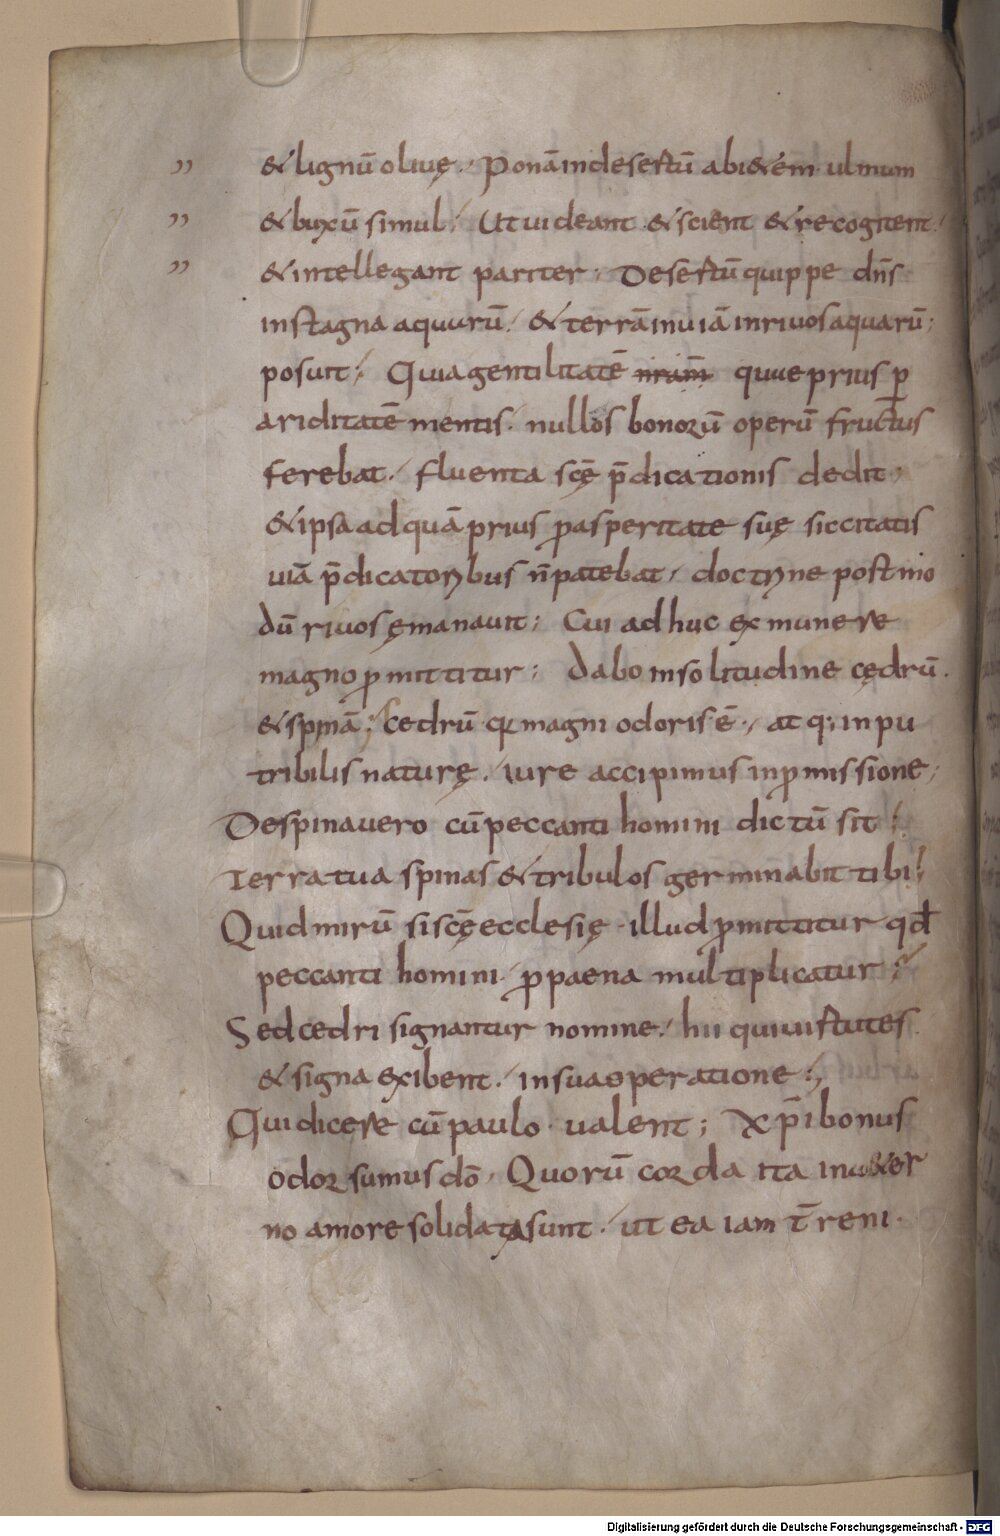 ” & lignū oliuę. Ponā in desertū abi&ēm ulmum
” & buxū simul; Ut uideant & scient & recogitent.
” & intellegant pariter; Desertū quippe dn̄s
in stagna aquarū. & terrā inuiā in riuos aquarū;
posuit; Quia gentilitatē nr̄am̄ quae prius p̱
ariditatē mentis. nullos bonorū operū fructus
ferebat. fluenta scę̄ p̄dicationis dedit;
& ipsa ad quā prius p̱ asperitate suę siccitatis
uiā p̄dicatoribus n̄ patebat, doctrine post mo
dū riuos ęmanauit; Cui adhuc ex munere
magno ꝓmittitur; Dabo in solitudine cędrū.
& spinā; Cedrū qꝛ magni odoris ē., atq; inpu
tribilis naturę. iure accipimus in ꝓmissione;
De spina uero cū peccanti homini dictū sit;
Terra tua spinas & tribulos germinabit tibi;
Quid mirū si scę̄ ecclesię illud ꝓmittitur qđ
peccanti homini. ꝓ paena multiplicatur;
Sed cedri signantur nomine. hii qui uirtutes
& signa exibent. in sua operatione;
Qui dicere cū paulo ualent; Xp̄i bonus
odor sumus dō. Quorū corda ita in &er
no amore solidata sunt. ut ea iam t̄reni.
Digitalisierung gefördert durch die Deutsche Forschungsgemeinschaft - DFG